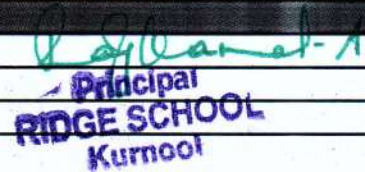 Principal
RIDGE SCHOOL
Kurnool